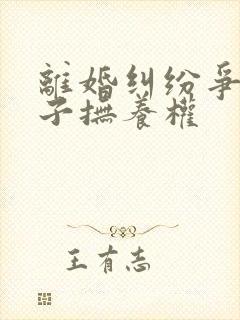 離婚糾紛爭
子撫養權
王有志